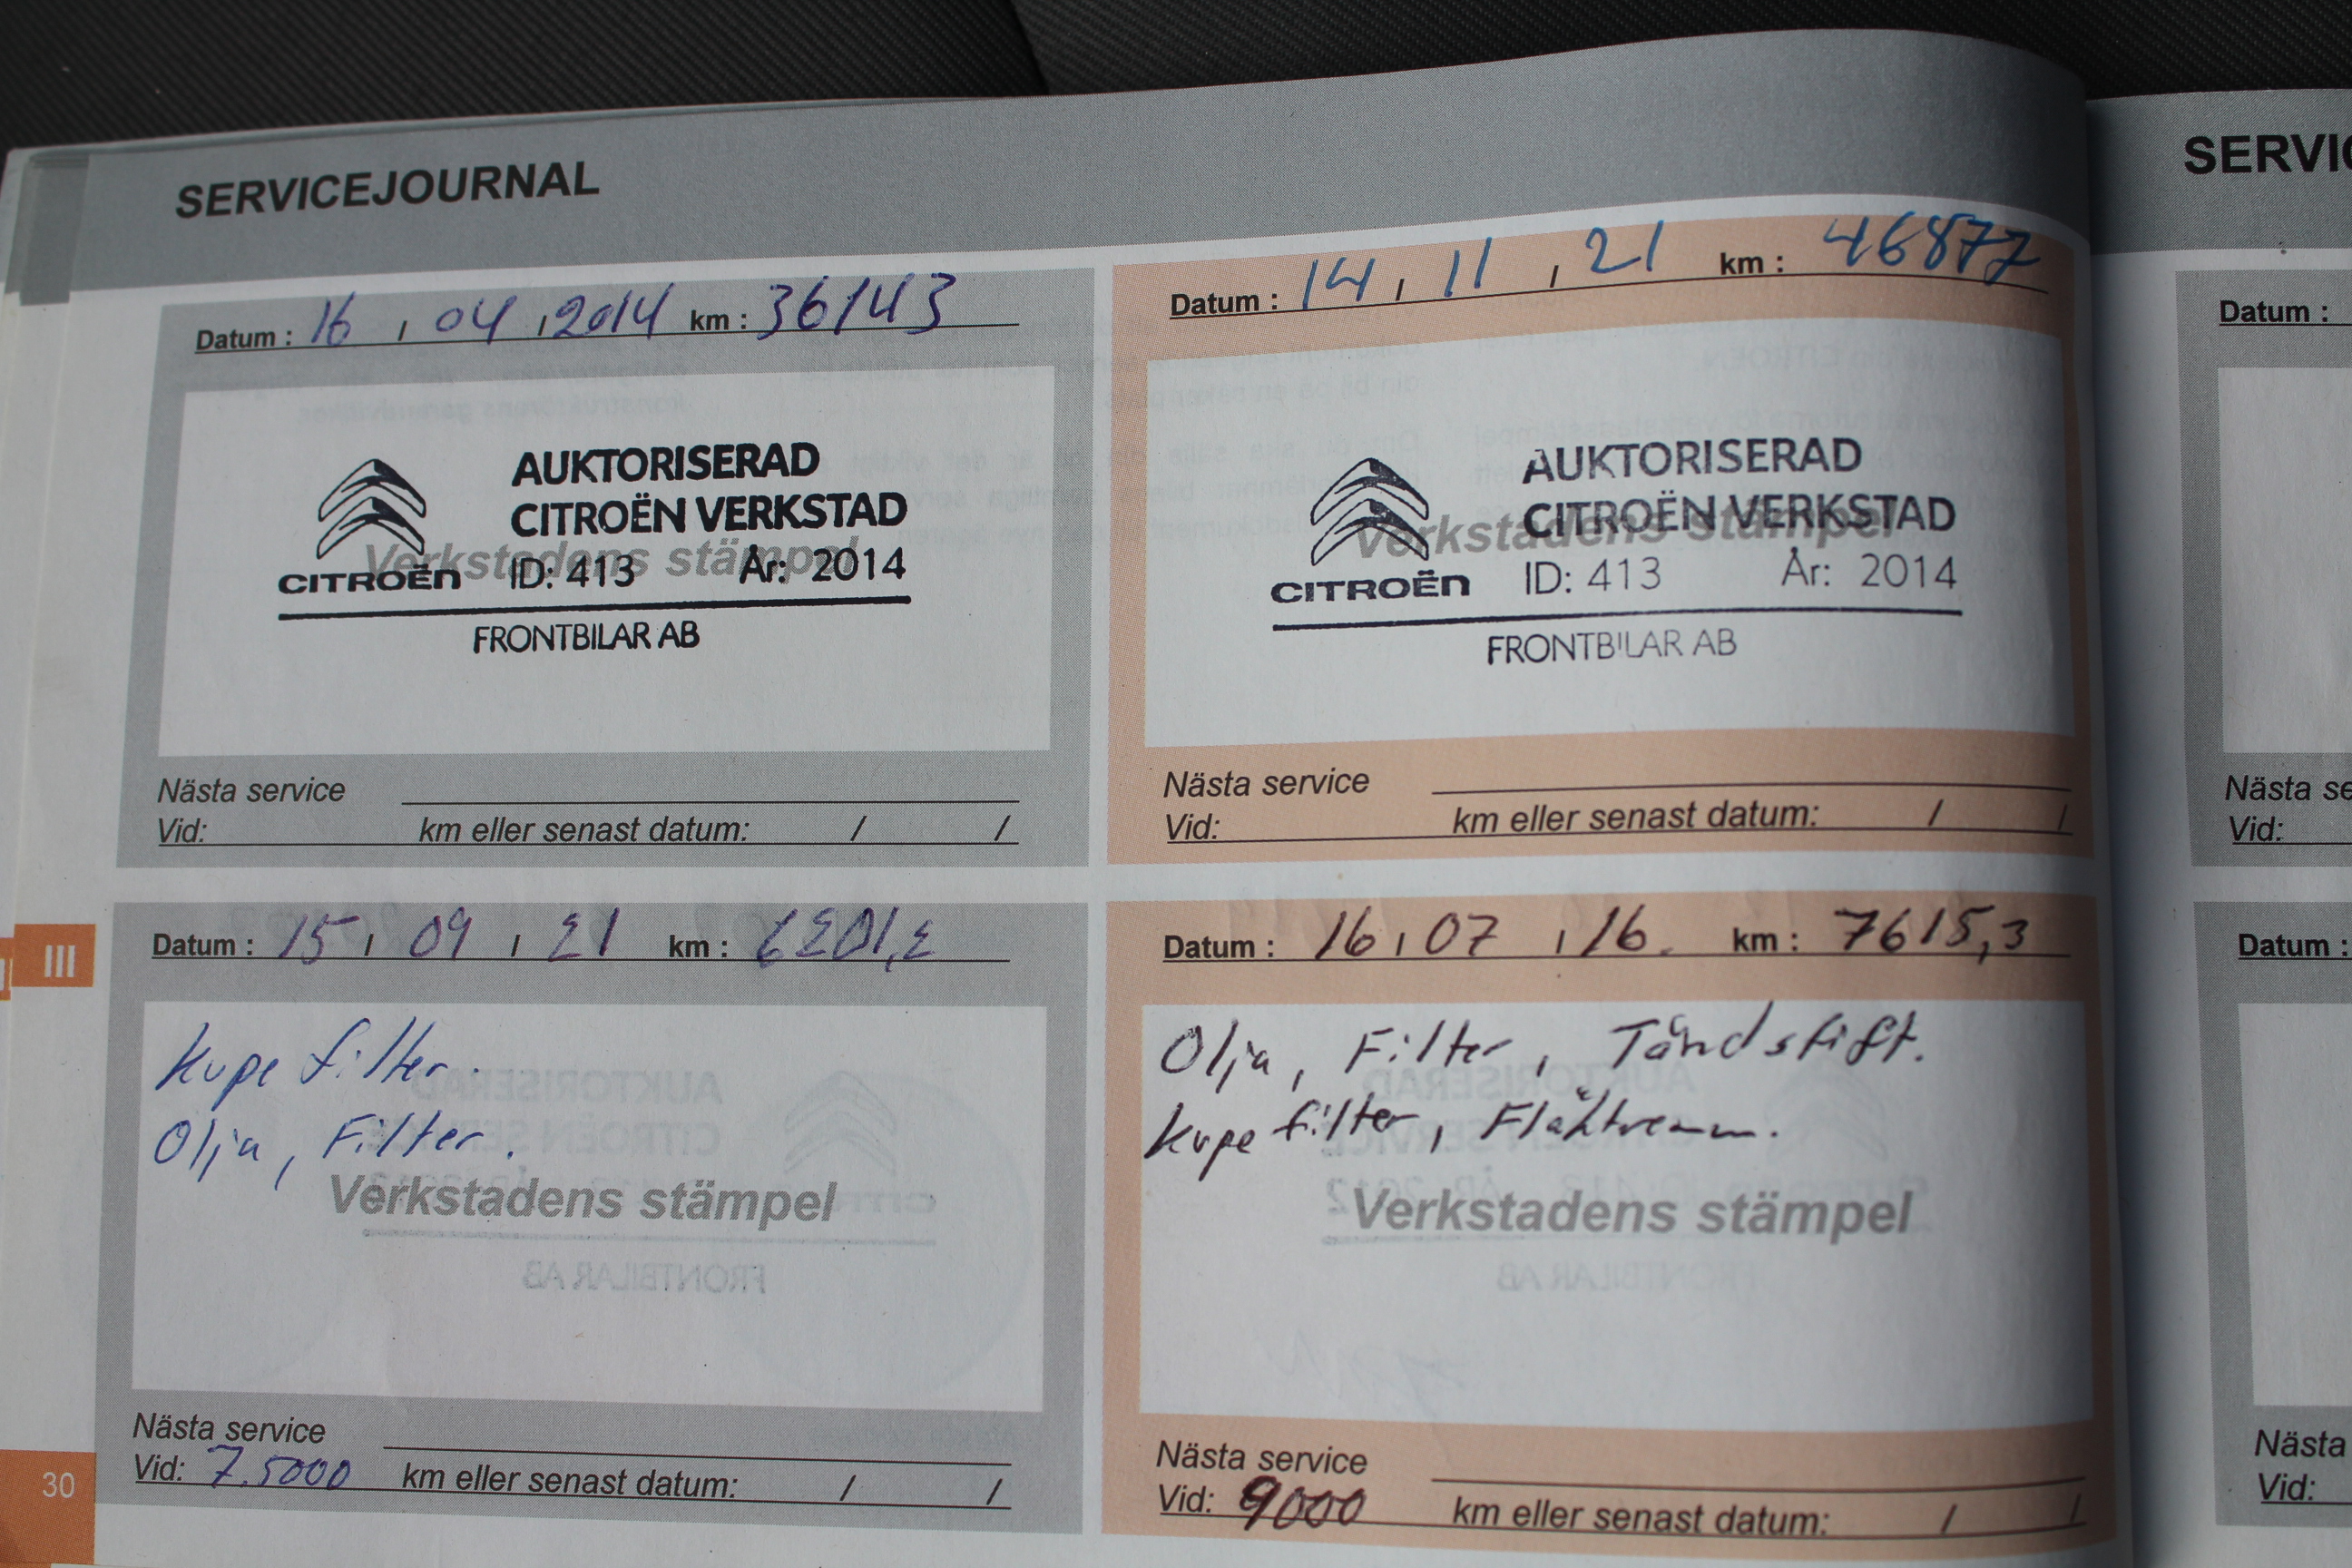 SERVICEJOURNAL
Datum : 16 / 04 / 2014 km : 36143
AUKTORISERAD
CITROËN VERKSTAD
Verkstadens stämpel
CITROËN ID: 413 År: 2014
FRONTBILAR AB
Nästa service
Vid: km eller senast datum: / /
Datum : 14 / 11 / 21 km : 46877
AUKTORISERAD
CITROËN VERKSTAD
Verkstadens stämpel
CITROËN ID: 413 År: 2014
FRONTBILAR AB
Nästa service
Vid: km eller senast datum: / /
III
Datum : 15 / 09 / 21 km : 6201,2
Kupe filter.
Olja, Filter.
Verkstadens stämpel
Nästa service
Vid: 7.5000 km eller senast datum: / /
30
Datum : 16 / 07 / 16. km : 7615,3
Olja, Filter, Tändstift.
Kupe filter, Fläktremm.
Verkstadens stämpel
Nästa service
Vid: 9000 km eller senast datum: / /
Datum :
Vid:
Datum :
Nästa
Vid: